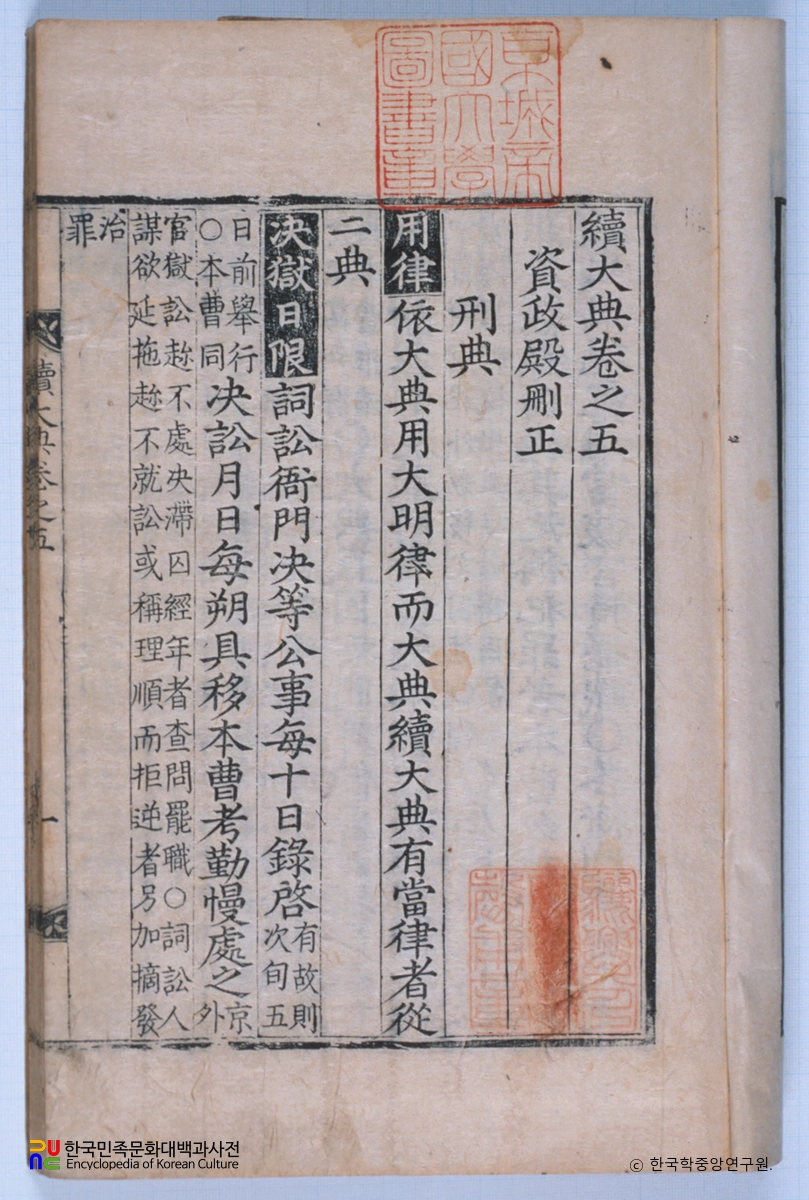 京城帝
國大學
圖書章
續大典卷之五
資政殿刪正
刑典
用律依大典用大明律而大典續大典有當律者從
二典
決獄日限詞訟衙門决等公事每十日錄啓有故則次旬五
日前擧行○本曹同决訟月日每朔具移本曹考勤慢處之京外
官獄訟趁不處决滯囚經年者查問罷職○詞訟人
謀欲延拖趁不就訟或稱理順而拒逆者另加摘發
治罪
續大典卷之五
一
한국민족문화대백과사전
Encyclopedia of Korean Culture
© 한국학중앙연구원.